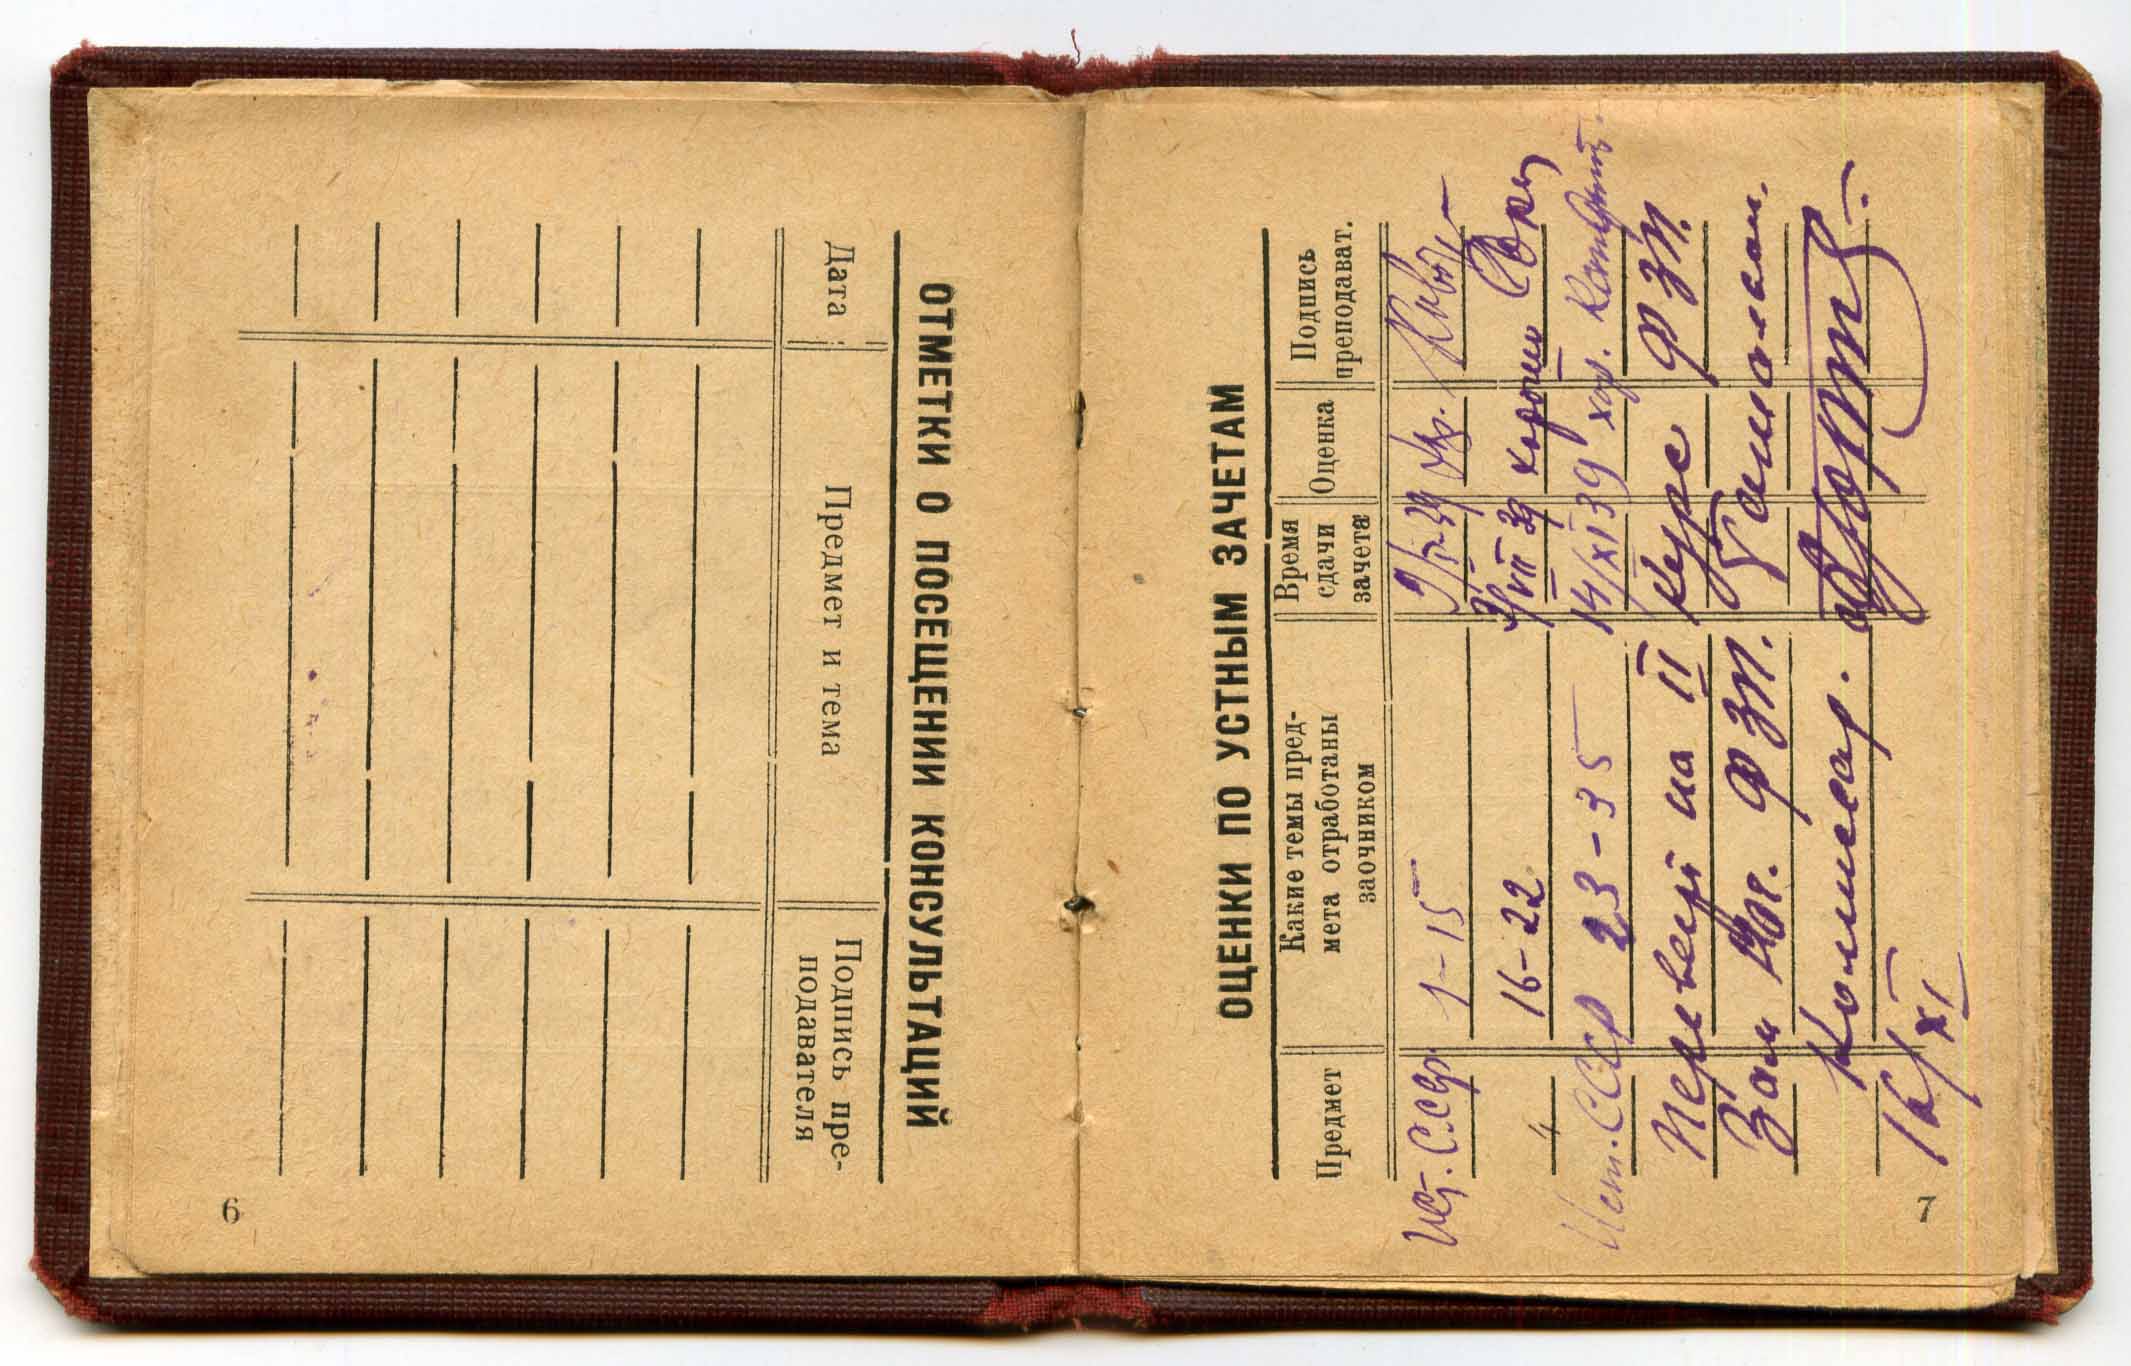 6
ОТМЕТКИ О ПОСЕЩЕНИИ КОНСУЛЬТАЦИЙ
Дата
Предмет и тема
Подпись пре-
подавателя
ОЦЕНКИ ПО УСТНЫМ ЗАЧЕТАМ
Предмет
Какие темы пред-
мета отработаны
заочником
Время
сдачи
зачета
Оценка
Подпись
преподават.
Ист. СССР 1-15
16-22 VII 39 хорошо
Ист. СССР 23-35 14/XI 39 хор.
Переведен на II курс ФЗП.
Зам ФЗП. Батальон.
Комиссар.
16/XI
7